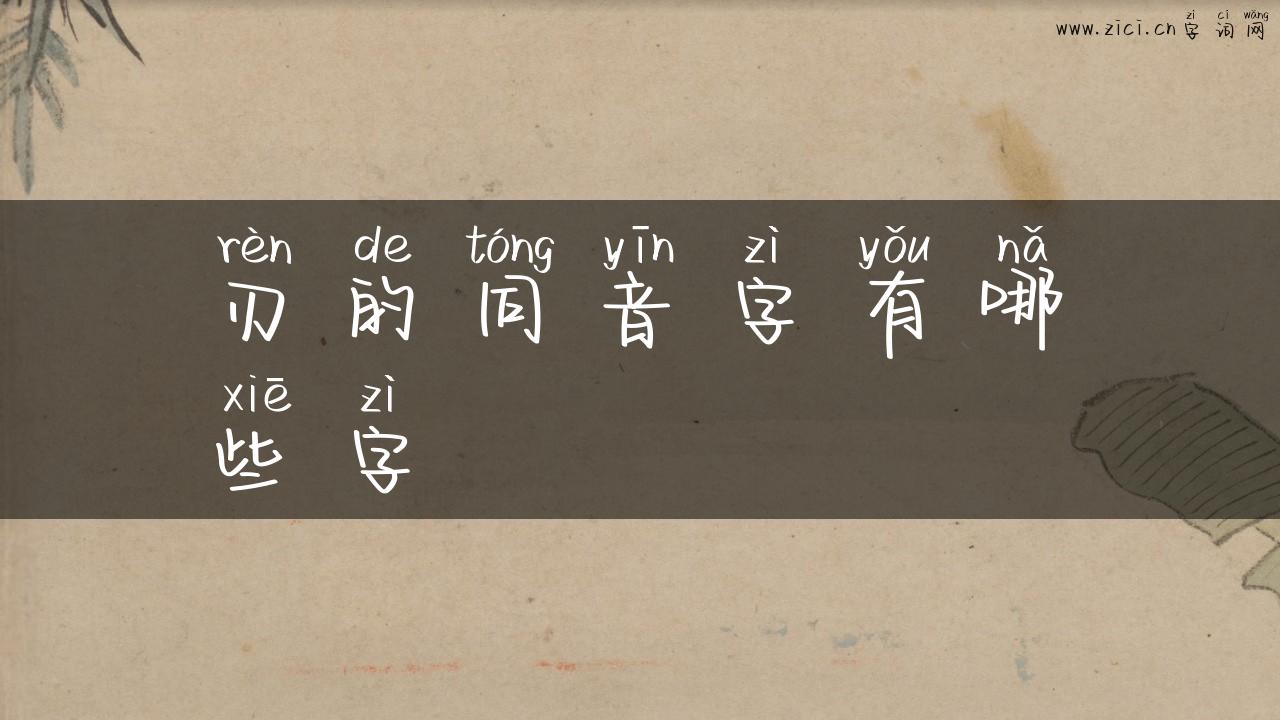 zì cí wǎng
www.zici.cn 字 词 网
rèn de tóng yīn zì yǒu nǎ
刃 的 同 音 字 有 哪
xiē zì
些 字